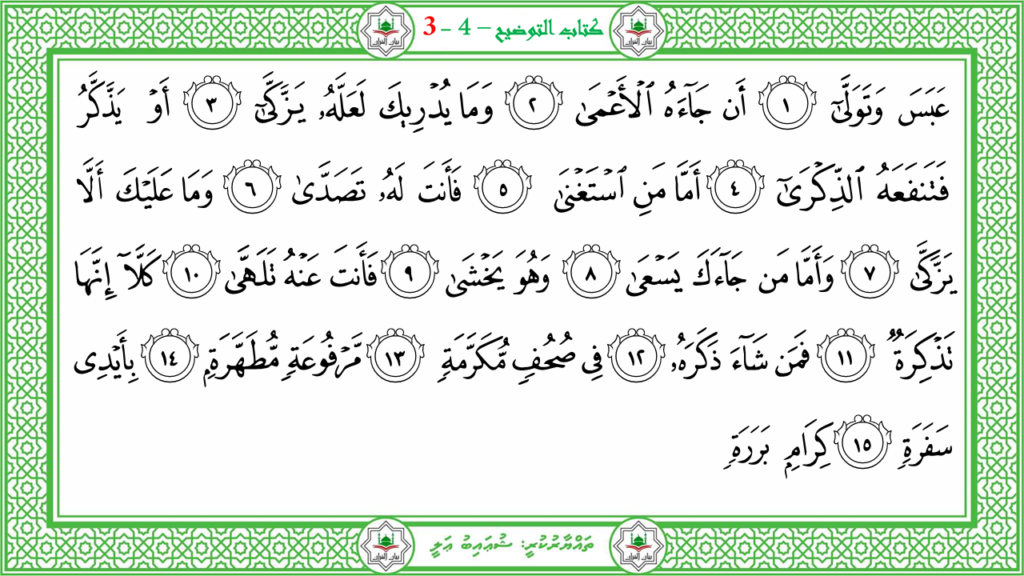 كتاب التوضيح – 4 - 3
عَبَسَ وَتَوَلَّىٰٓ ١ أَن جَآءَهُ ٱلۡأَعۡمَىٰ ٢ وَمَا يُدۡرِيكَ لَعَلَّهُۥ يَزَّكَّىٰٓ ٣ أَوۡ يَذَّكَّرُ
فَتَنفَعَهُ ٱلذِّكۡرَىٰٓ ٤ أَمَّا مَنِ ٱسۡتَغۡنَىٰ ٥ فَأَنتَ لَهُۥ تَصَدَّىٰ ٦ وَمَا عَلَيۡكَ أَلَّا
يَزَّكَّىٰ ٧ وَأَمَّا مَن جَآءَكَ يَسۡعَىٰ ٨ وَهُوَ يَخۡشَىٰ ٩ فَأَنتَ عَنۡهُ تَلَهَّىٰ ١٠ كَلَّآ إِنَّهَا
تَذۡكِرَةٞ ١١ فَمَن شَآءَ ذَكَرَهُۥ ١٢ فِي صُحُفٖ مُّكَرَّمَةٖ ١٣ مَّرۡفُوعَةٖ مُّطَهَّرَةِۭ ١٤ بِأَيۡدِي
سَفَرَةٖ ١٥ كِرَامِۭ بَرَرَةٖ
ތައްޔާރުކުރީ: ޝުޢައިބު ޢަލީ